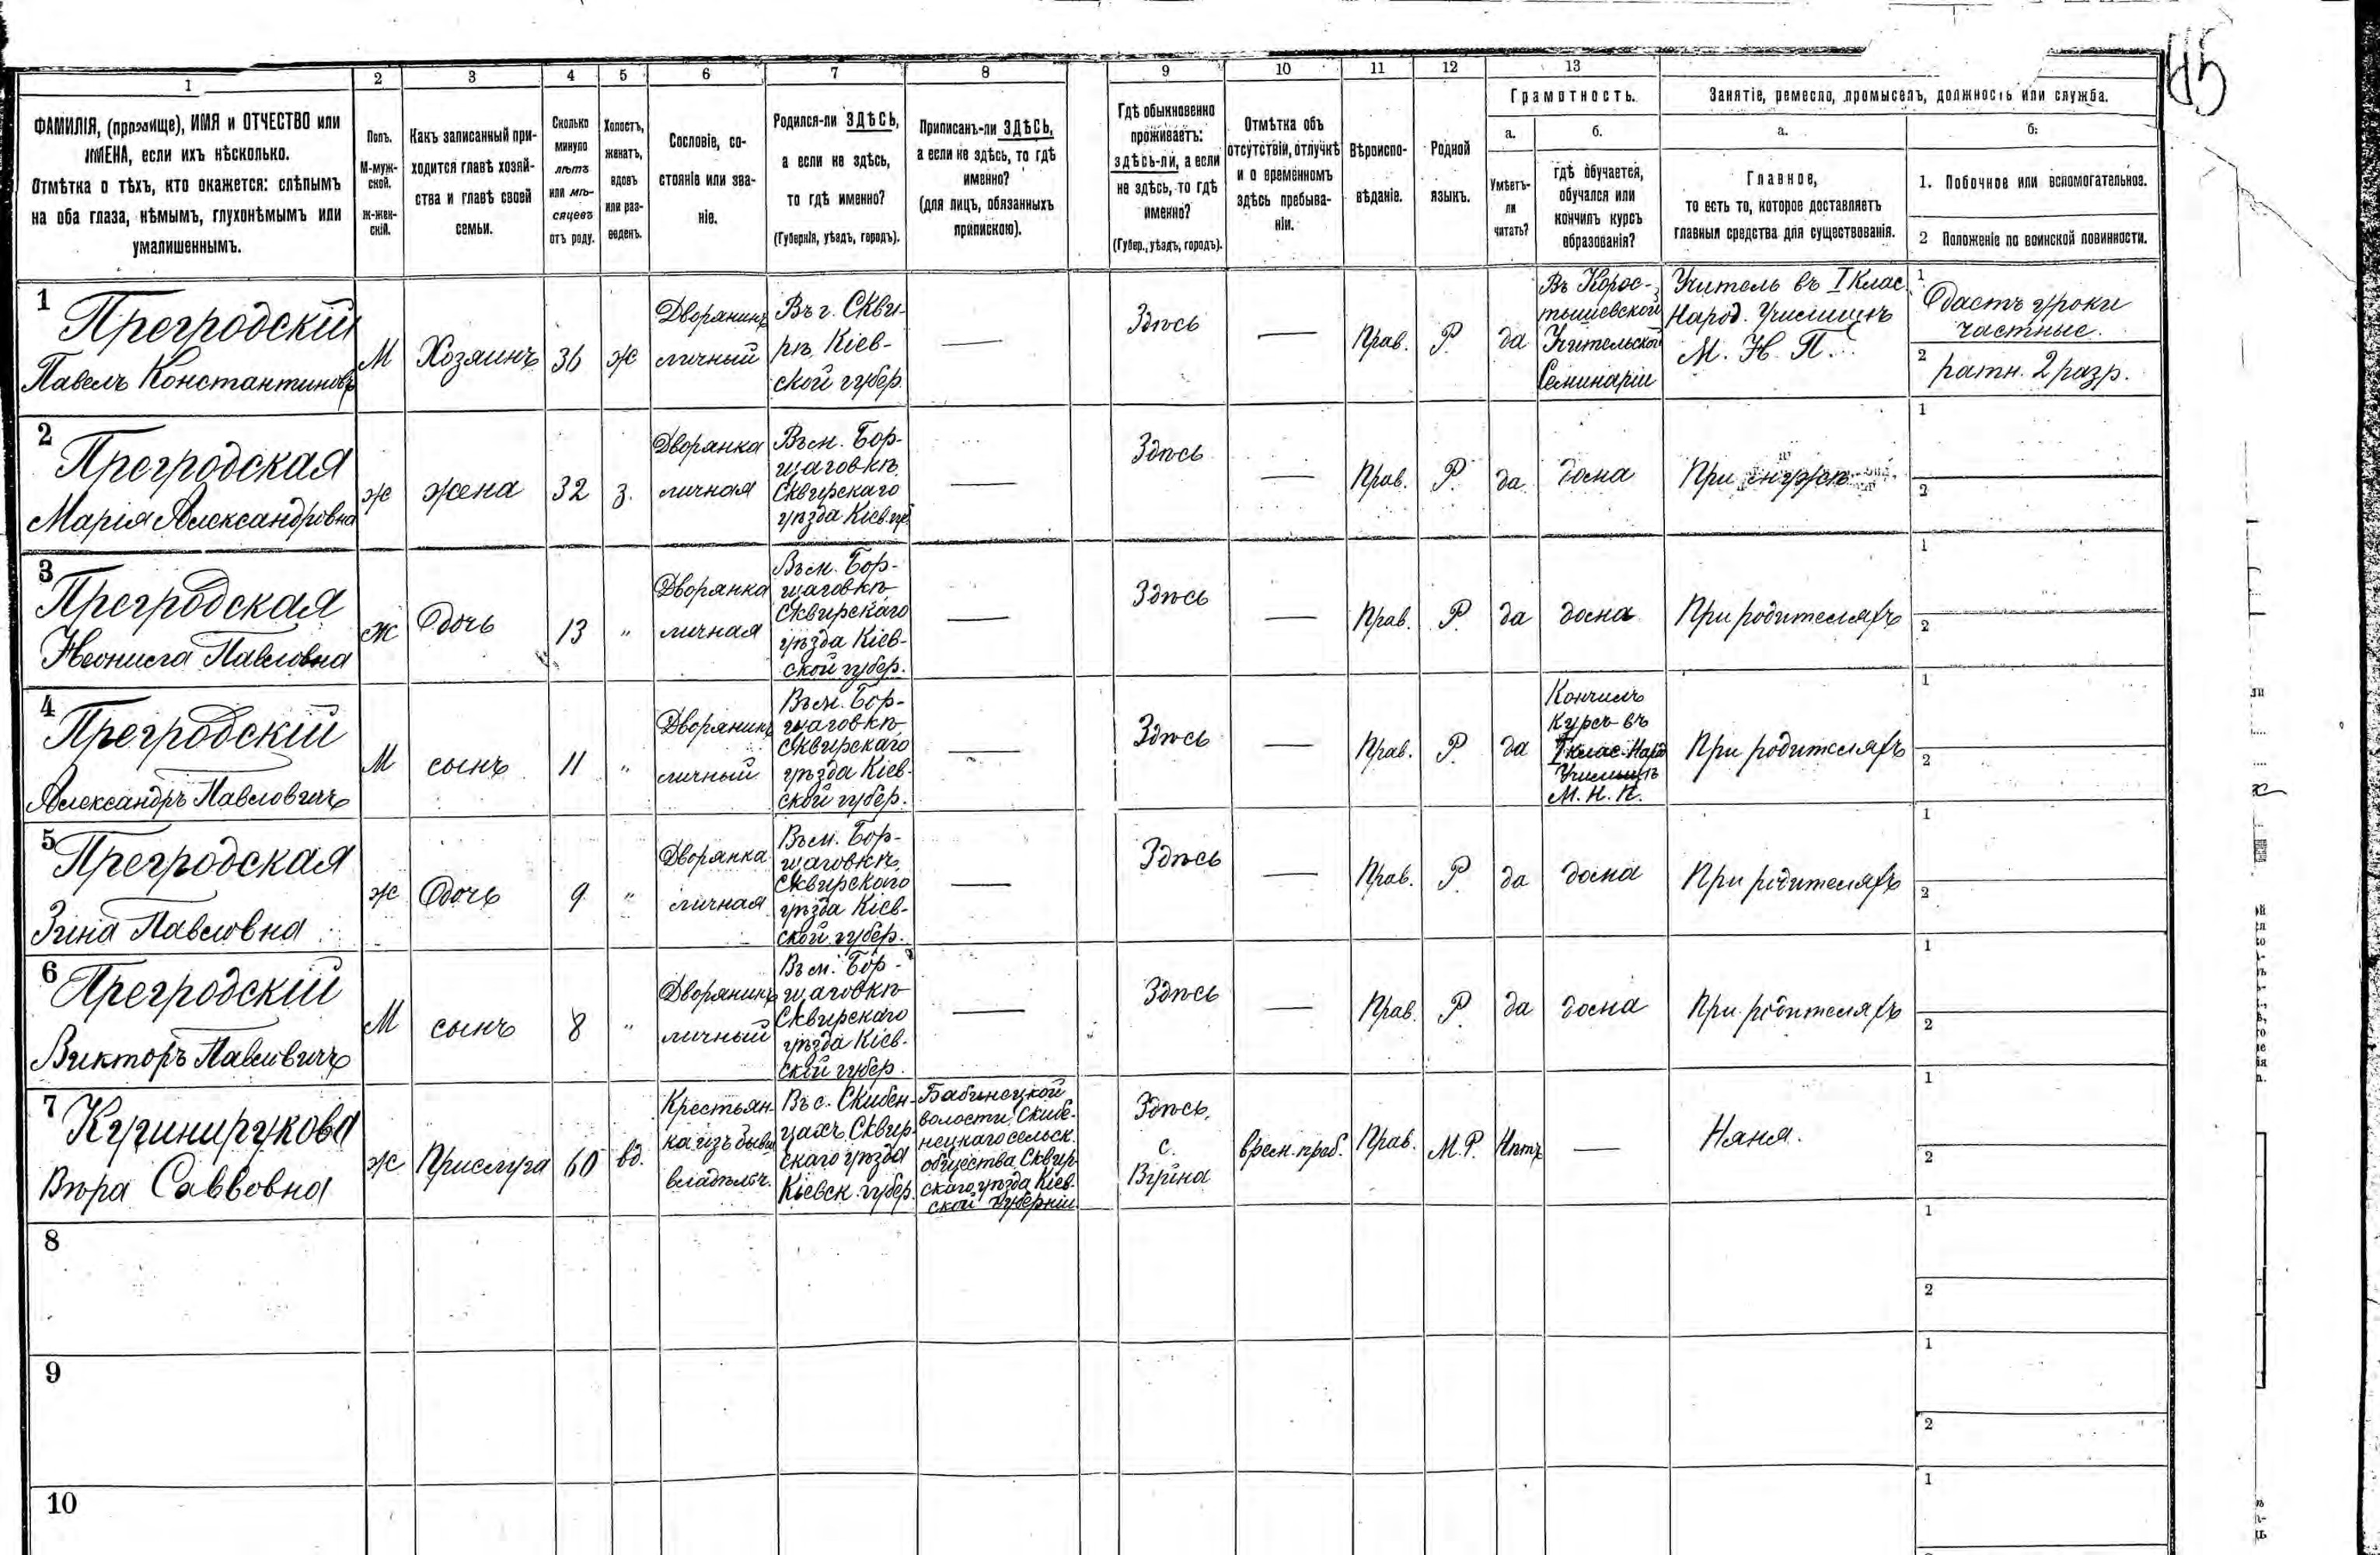 45
1 2 3 4 5 6 7 8 9 10 11 12 13
ФАМИЛІЯ, (прозвище), ИМЯ и ОТЧЕСТВО или
ИМЕНА, если ихъ нѣсколько.
Отмѣтка о тѣхъ, кто окажется: слѣпымъ
на оба глаза, нѣмымъ, глухонѣмымъ или
умалишеннымъ.
Полъ.
М-муж-
ской.
Ж-жен-
скій.
Какъ записанный при-
ходится главѣ хозяй-
ства и главѣ своей
семьи.
Сколько
минуло
лѣтъ
или мѣ-
сяцевъ
отъ роду.
Холостъ,
женатъ,
вдовъ
или раз-
веденъ.
Сословіе, со-
стояніе или зва-
ніе.
Родился-ли ЗДѢСЬ,
а если не здѣсь,
то гдѣ именно?
(Губернія, уѣздъ, городъ).
Приписанъ-ли ЗДѢСЬ,
а если не здѣсь, то гдѣ
именно?
(для лицъ, обязанныхъ
припискою).
Гдѣ обыкновенно
проживаетъ:
здѣсь-ли, а если
не здѣсь, то гдѣ
именно?
(Губер., уѣздъ, городъ).
Отмѣтка объ
отсутствіи, отлучкѣ
и о временномъ
здѣсь пребыва-
ніи.
Вѣроиспо-
вѣданіе.
Родной
языкъ.
Грамотность.
а.
Умѣетъ-
ли
читать?
б.
гдѣ обучается,
обучался или
кончилъ курсъ
образованія?
Занятіе, ремесло, промыселъ, должность или служба.
а.
Главное,
то есть то, которое доставляетъ
главныя средства для существованія.
б.
1. Побочное или вспомогательное.
2 Положеніе по воинской повинности.
1
Прегродскій
Павелъ Константиновъ
М
Хозяинъ
36
ж
Дворянинъ
личный
Въ г. Скви-
рѣ, Кіев-
ской губер.
—
Здѣсь
—
Прав.
Р.
да
Въ Корос-
тышевской
Учительской
Семинаріи
Учитель въ I Клас.
Народ. Училищѣ
М. Н. П.
1
Даетъ уроки
частные.
2
ратн. 2 разр.
2
Прегродская
Марія Александровна
ж
жена
32
з.
Дворянка
личная
Въ м. Бор-
щаговкѣ
Сквирскаго
уѣзда Кіев. губ.
—
Здѣсь
—
Прав.
Р.
да
дома
При мужѣ
1
2
3
Прегродская
Неонила Павловна
ж
Дочь
13
"
Дворянка
личная
Въ м. Бор-
щаговкѣ
Сквирскаго
уѣзда Кіев-
ской губер.
—
Здѣсь
—
Прав.
Р.
да
дома
При родителяхъ
1
2
4
Прегродскій
Александръ Павловичъ
М
сынъ
11
"
Дворянинъ
личный
Въ м. Бор-
щаговкѣ
Сквирскаго
уѣзда Кіев-
ской губер.
—
Здѣсь
—
Прав.
Р.
да
Кончилъ
Курсъ въ
I клас. Нар.
Училищѣ
М. Н. П.
При родителяхъ
1
2
5
Прегродская
Зина Павловна
ж
Дочь
9
"
Дворянка
личная
Въ м. Бор-
щаговкѣ
Сквирского
уѣзда Кіев-
ской губер.
—
Здѣсь
—
Прав.
Р.
да
дома
При родителяхъ
1
2
6
Прегродскій
Викторъ Павловичъ
М
сынъ
8
"
Дворянинъ
личный
Въ м. Бор-
щаговкѣ
Сквирскаго
уѣзда Кіев-
ской губер.
—
Здѣсь
—
Прав.
Р.
да
дома
При родителяхъ
1
2
7
Вѣра Саввовна
ж
Прислуга
60
вд.
Крестьян-
ка изъ бывш.
владѣльч.
Въ с. Скибен-
цахъ Сквир-
скаго уѣзда
Кіевск. губер.
Бабинецкой
волости, Скибе-
нецкаго сельск.
общества, Сквир-
скаго уѣзда Кіев-
ской губерніи.
Здѣсь.
с.
временн. преб.
Прав.
М. Р.
Нѣтъ
—
Няня.
1
2
8
1
2
9
1
2
10
1